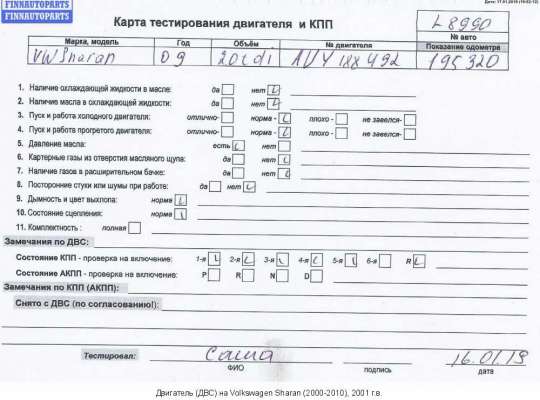 FINNAUTOPARTS
FINNAUTOPARTS
Карта тестирования двигателя и КПП
L8990
№ авто
Марка, модель Год Объём № двигателя Показание одометра
VW Sharan 09 20tdi AUY 188492 195320
1. Наличие охлаждающей жидкости в масле: да нет
2. Наличие масла в охлаждающей жидкости: да нет
3. Пуск и работа холодного двигателя: отлично- норма - плохо - не завелся-
4. Пуск и работа прогретого двигателя: отлично- норма - плохо - не завелся-
5. Давление масла: есть нет
6. Картерные газы из отверстия масляного щупа: да нет
7. Наличие газов в расширительном бачке: да нет
8. Посторонние стуки или шумы при работе: да нет
9. Дымность и цвет выхлопа: норма
10. Состояние сцепления: норма
11. Комплектность: полная
Замечания по ДВС:
Состояние КПП - проверка на включение: 1-я 2-я 3-я 4-я 5-я 6-я R
Состояние АКПП - проверка на включение: P R N D
Замечания по КПП (АКПП):
Снято с ДВС (по согласованию!):
Тестировал: Саша 16.01.19
ФИО подпись дата
Двигатель (ДВС) на Volkswagen Sharan (2000-2010), 2001 г.в.